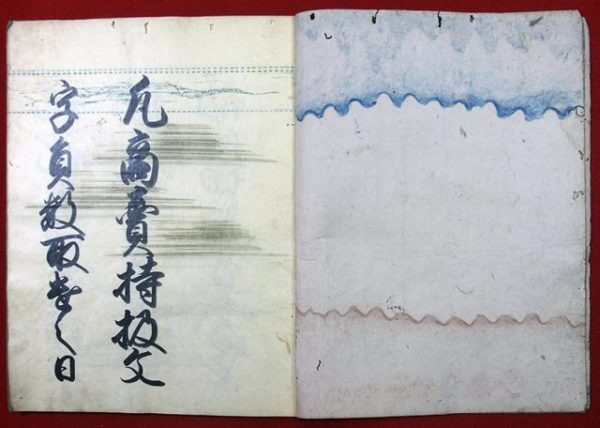 凡商賣持扱文
字員数取遣之日